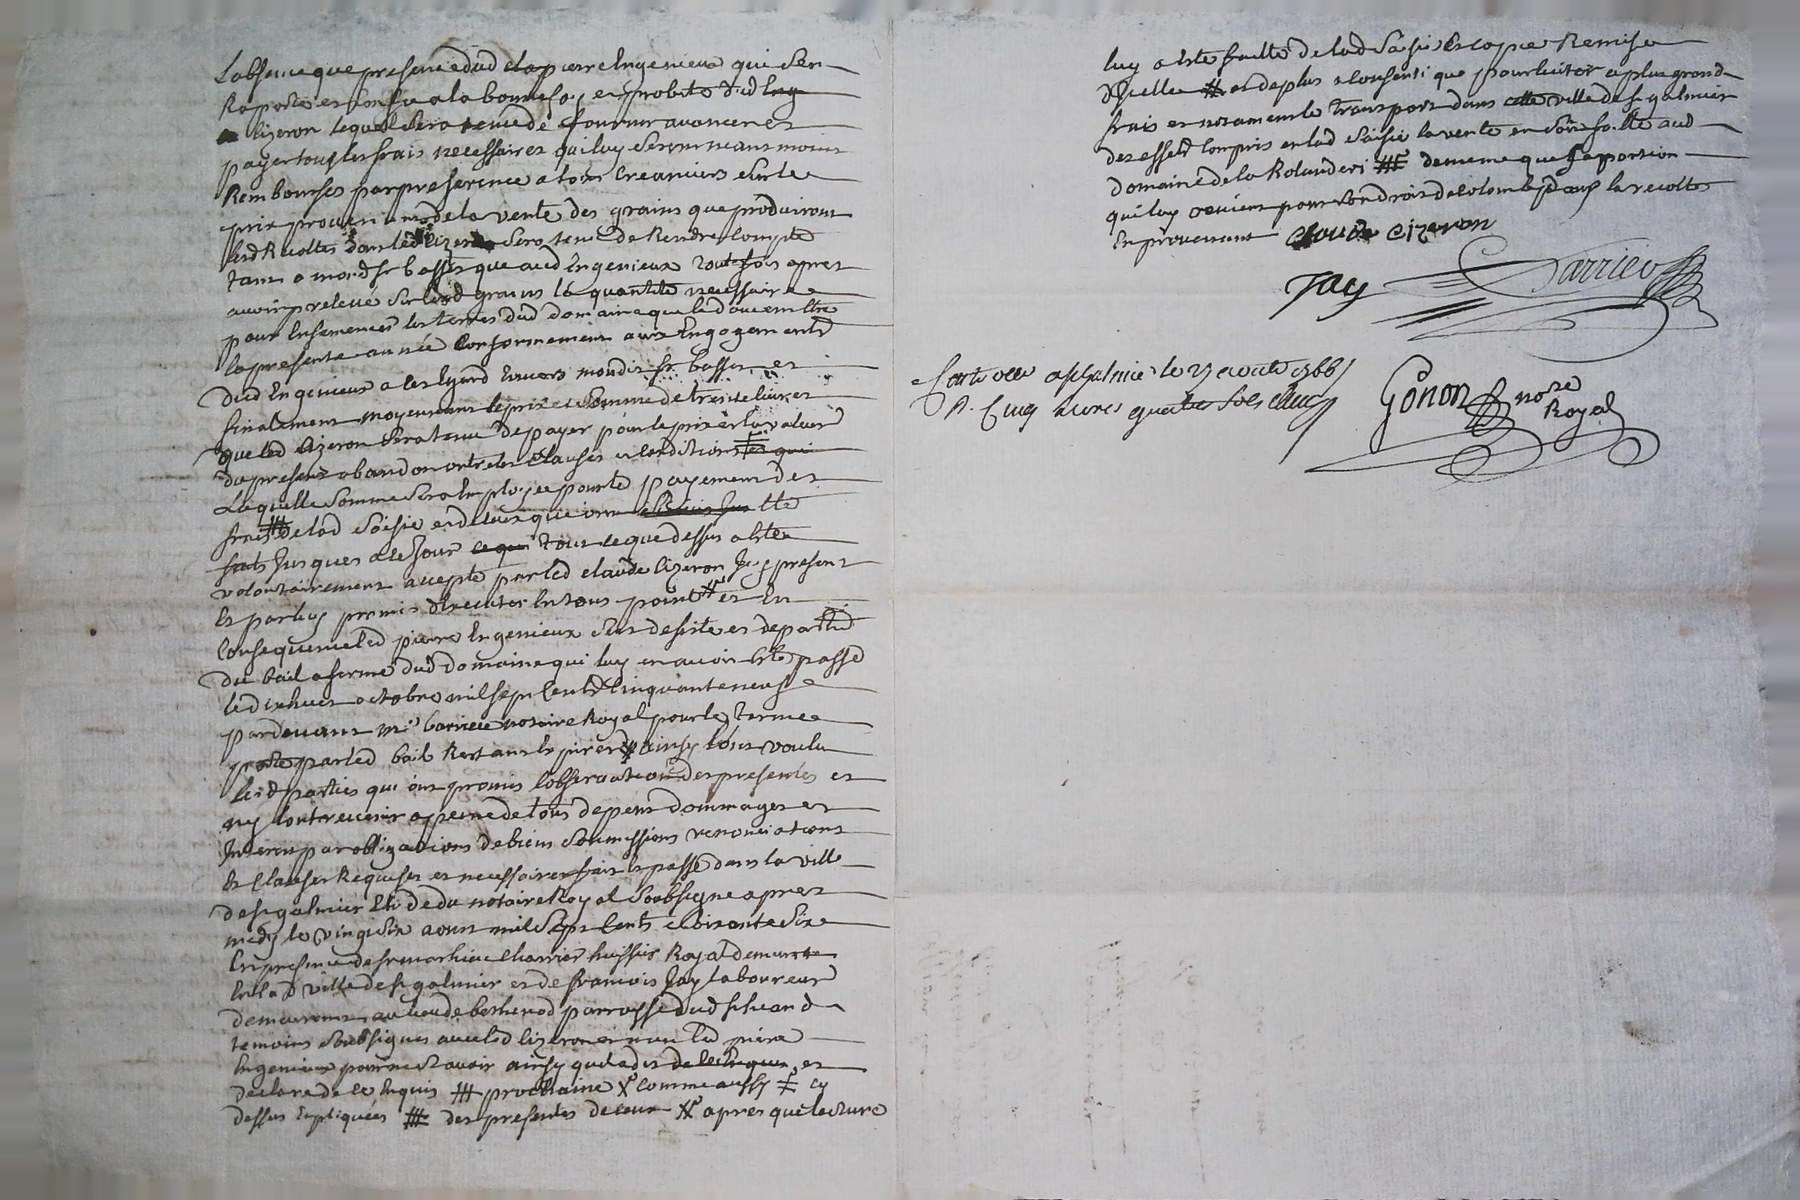 L'absence que presence dud pierre Ingenieux qui s'en
Raporte et confie a la bonne foy et probité dud
Cizeron lequel sera tenu de fournir avancer et
payer tous les frais necessaires qui luy seront neant moins
Rembourses par preference a tous creanciers sur le
prix provenu de la vente des grains que produiront
lesd Recoltes dont led Cizeron sera tenu de Rendre compte
tant a mond sr basset que aud Ingenieux toutefois apres
avoir prelevé sur lesd grains la quantité necessaire
pour Ensemencer les terres dud domaine que led doit emettre
la presente année Conformement aux Engagements
dud Ingenieux a cet Egard Envers mondit sr basset et
finalement moyennant le prix et somme de trente livres
que led Cizeron sera tenu de payer pour le prix et la valeur
du present abandon outre les Clauses et conditions
Laquelle somme sera Employée pour le payement des
frais de lad saisie et de ceux que
faits Jusques a ce Jour tout ce que dessus a été
volontairement accepté par led claude Cizeron Icy present
Et par luy promis d'Executer En tous points et En
Consequence led pierre Ingenieux s'est desisté et departi
du bail a ferme dud domaine qui luy en avoit Eté passé
le dix huit octobre mil sept Cents Cinquante neuf
par devant me barrieu notaire Royal pour le terme
porté par led bail Restant a Expirer ainsy l'ont voulu
lesd parties qui ont promis l'observation des presentes et
ny contrevenir a peine de tous depens dommages et
Interets par obligations de biens soumissions renonciations
Et Clauses Requises et necessaires fait Et passé dans la ville
de st galmier Etude du notaire Royal soubsigné apres
medy le vingt six aoust mil sept cents soixante six
En presence de sr mathieu Charrier huissier Royal demeurant
En lad ville de st galmier et de francois Jay laboureur
demeurant au lieu de bethenod parroisse dud
temoins soubsignés avec led Cizeron et non led pierre
Ingenieux pour ne scavoir ainsy qu'il a dit de ce Enquis et
declaré de ce Enquis prochaine comme aussy cy
dessus Expliquées des presentes de ceux apres que lecture
luy a Eté faitte de lad saisie Et copie Remise
d'Icelle et de plus a consenti que pour Eviter a plus grand
frais et notament le transport dans cette ville de st galmier
des effets Compris en lad saisie la vente en soit faitte aud
domaine de la Rolandieri de meme que la portion
qui luy revient pour son droit de colon dans les recoltes
En provenant claude cizeron
Jay Barrieu
Controllé a st Galmier le 27 aoust 1766
R. Cinq livres quatre sols
Gonon nore
Royal